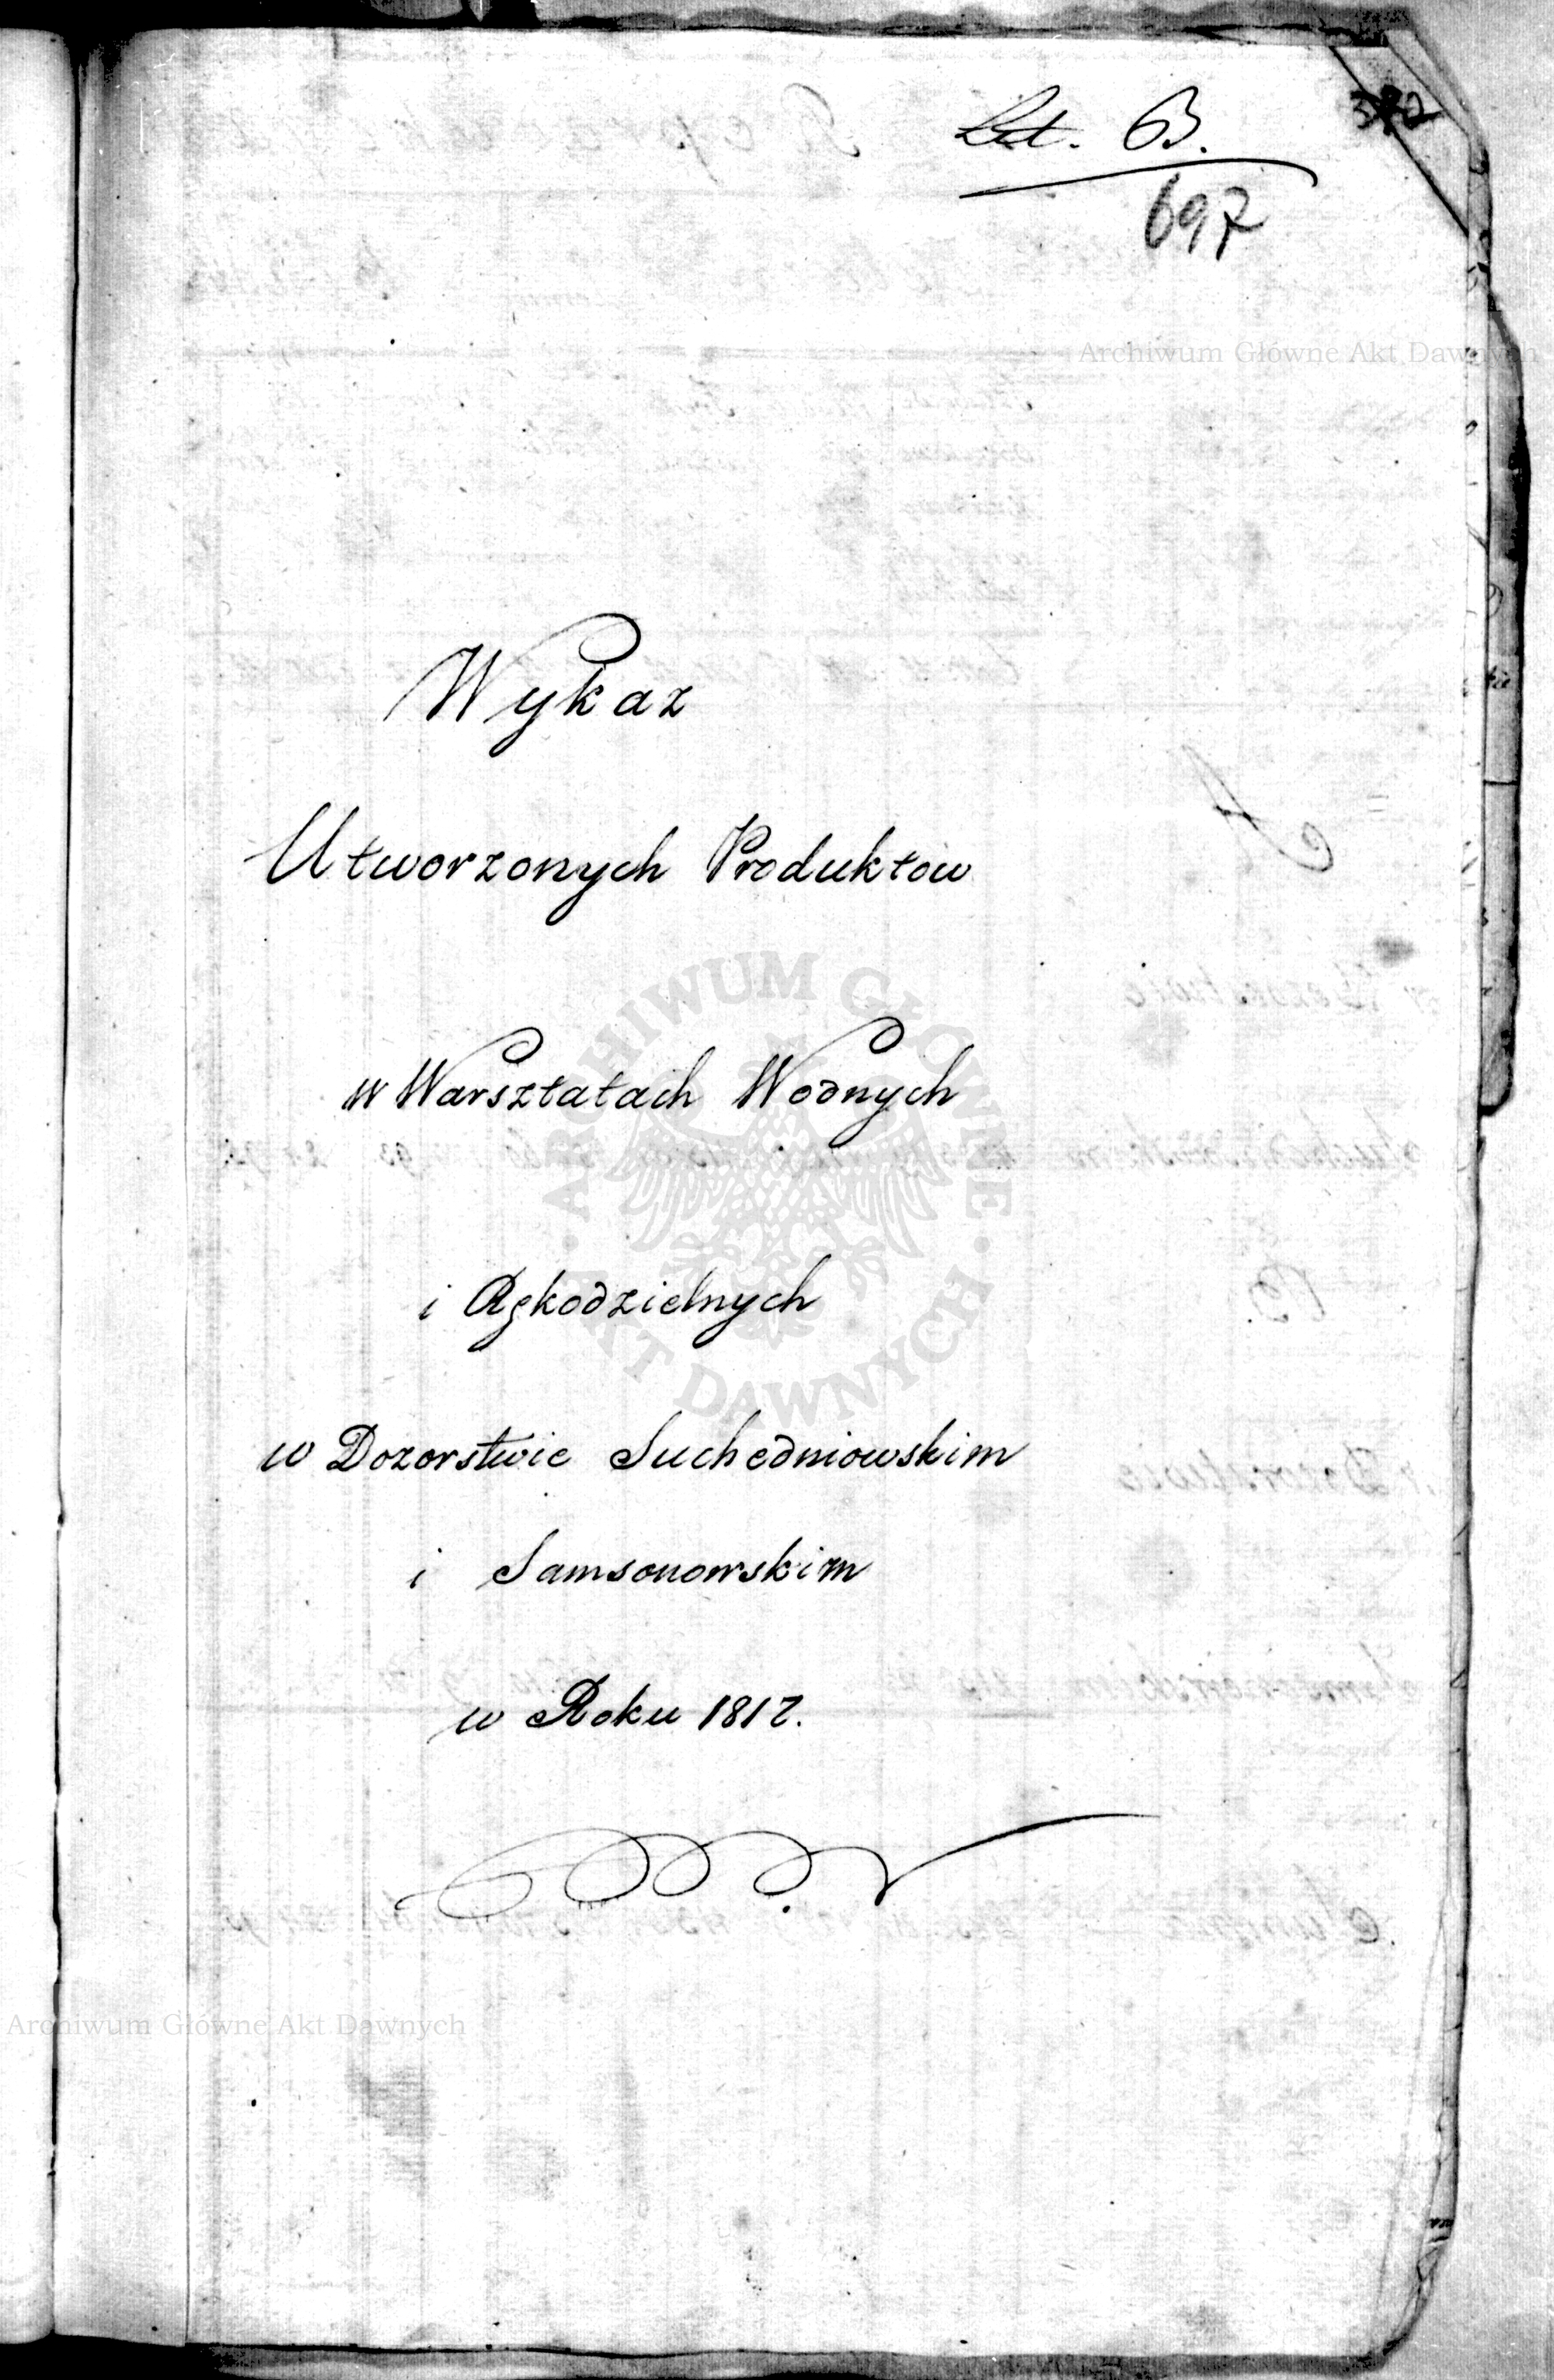 Lit. B.
372
697
Archiwum Główne Akt Dawnych
Wykaz
Utworzonych Produktow
w Warsztatach Wodnych
i Rękodzielnych
w Dozorstwie Suchedniowskim
i Samsonowskim
w Roku 1817.
ARCHIWUM GŁÓWNE AKT DAWNYCH
Archiwum Główne Akt Dawnych